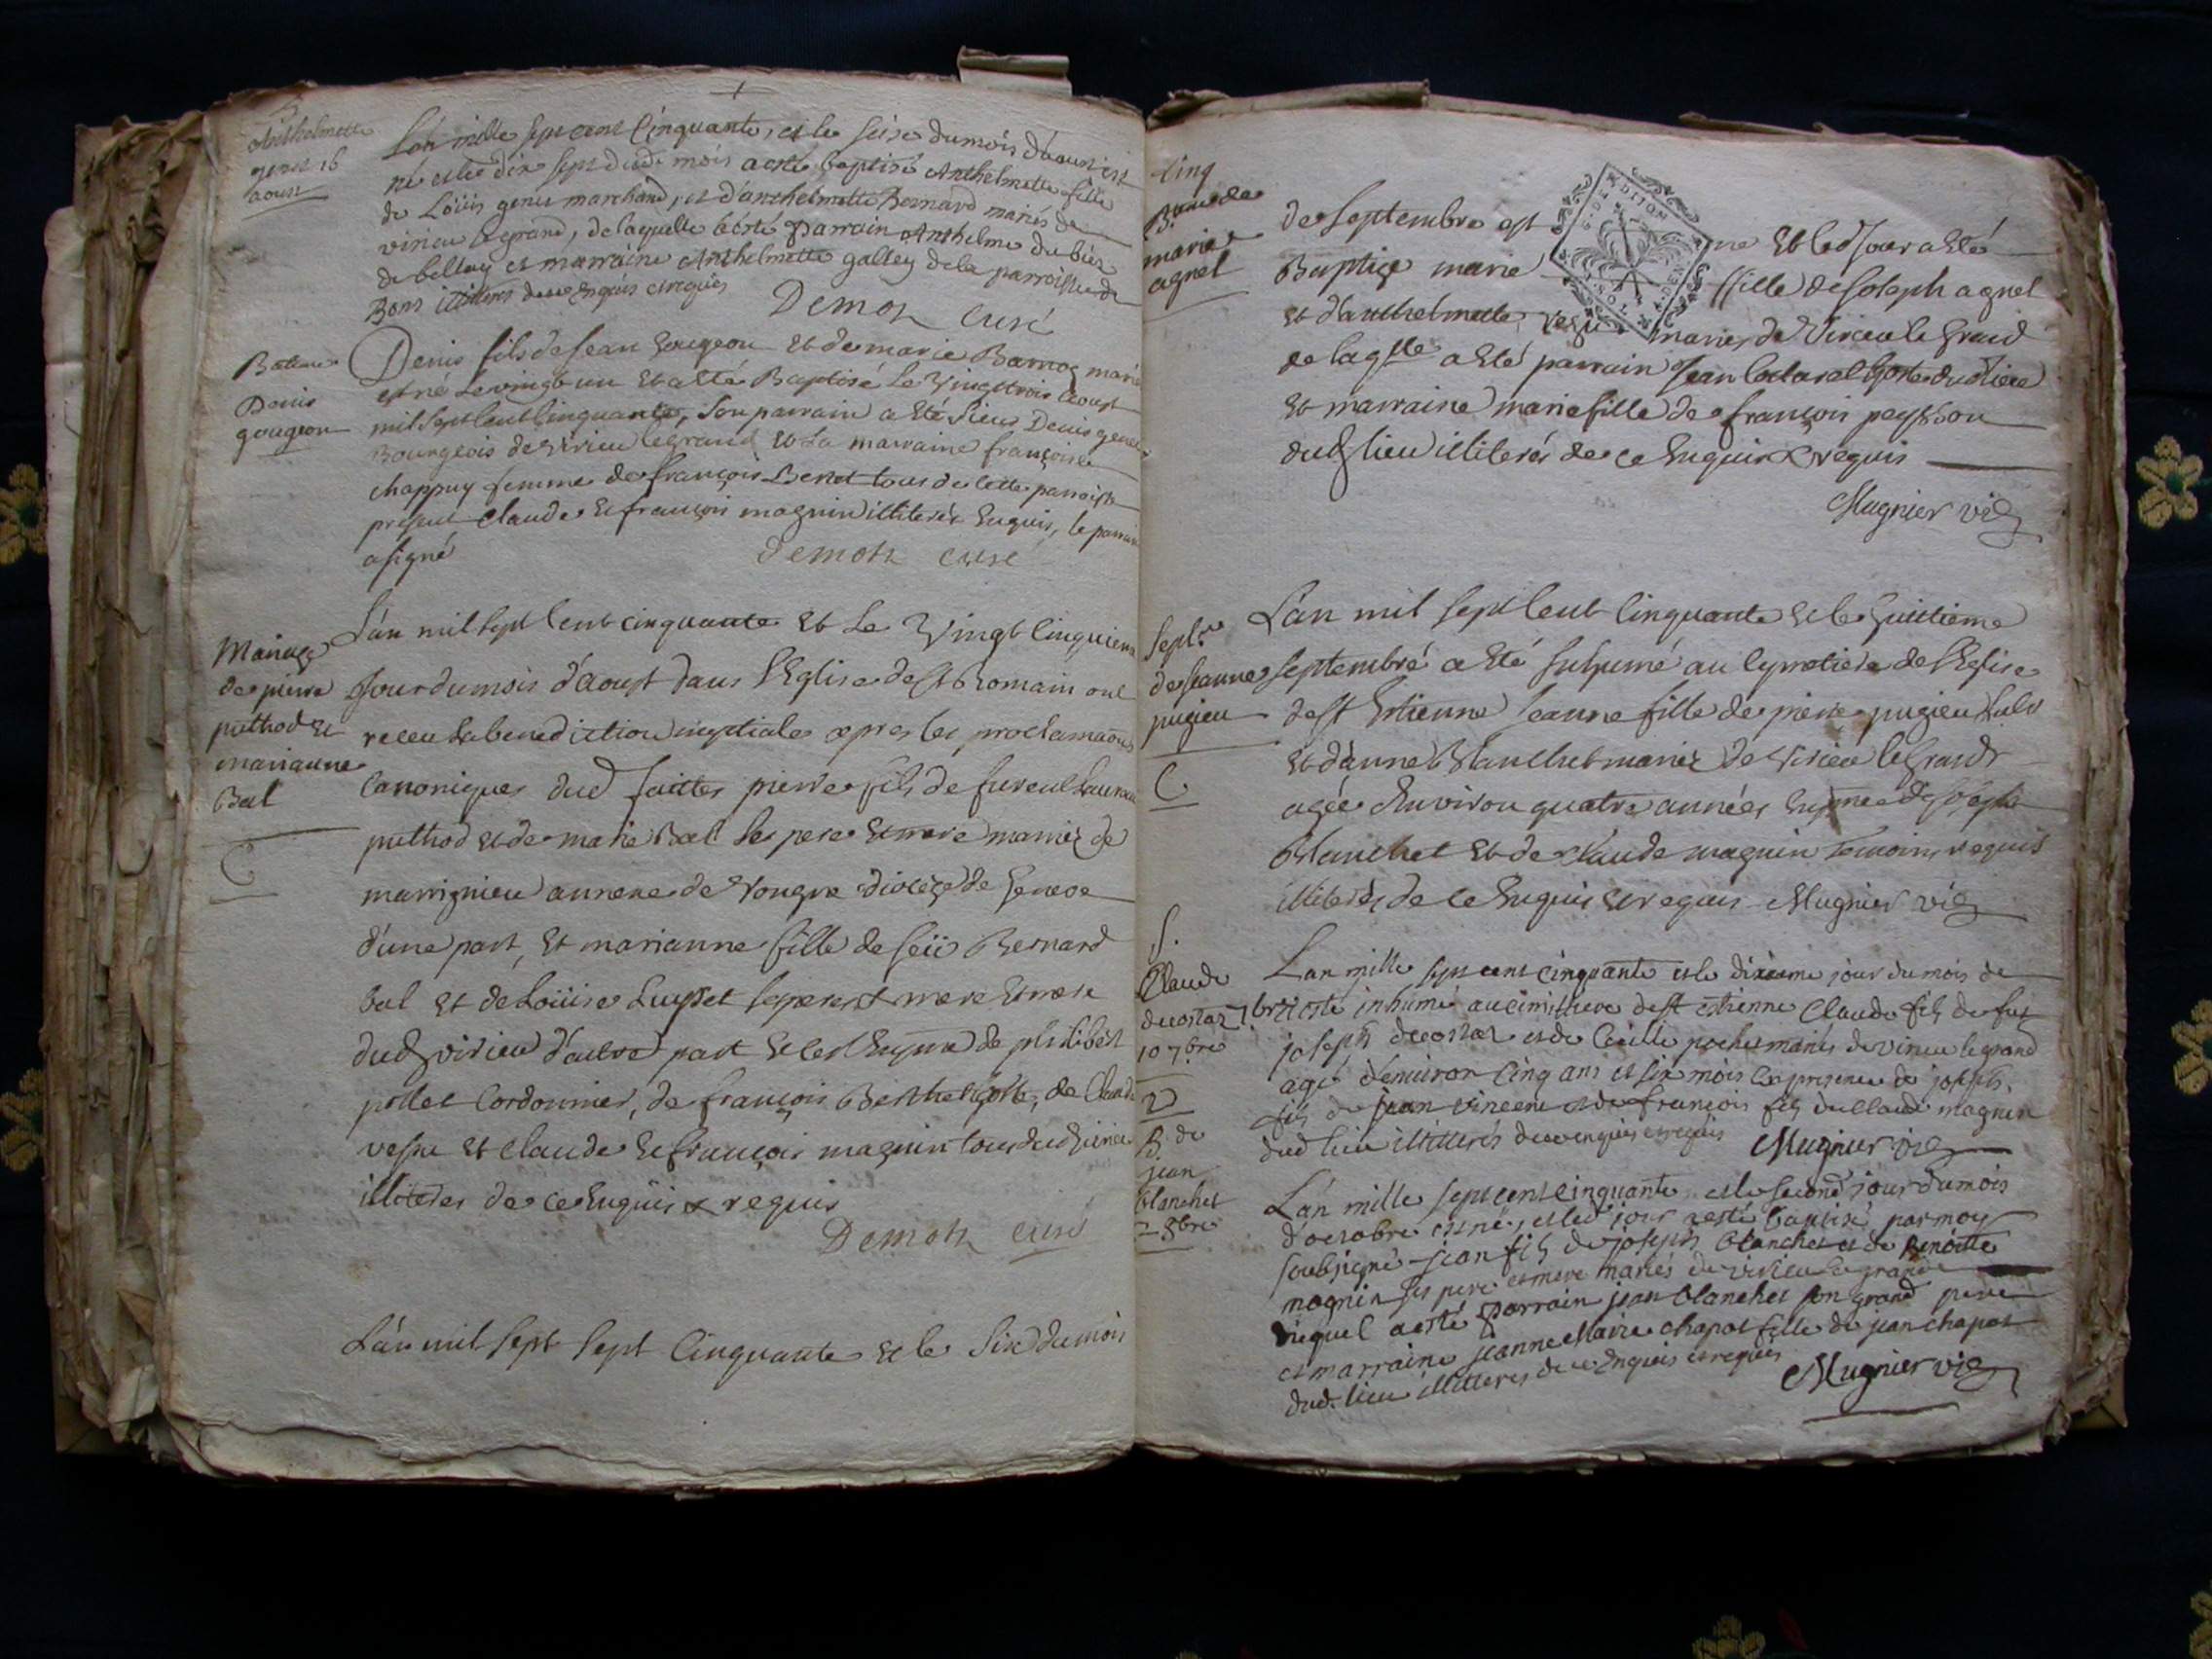 B
Anthelmette
genet 16
aoust
L'an mille sept cent Cinquante, et le seise du mois d'aoust est
né et le dix sept dud. mois a esté baptisé Anthelmette fille
de Loüis genet marchand, et d'anthelmette Bernard mariés de
virieu le grand, de laquelle a esté parrain Anthelme dubiez
de belley et marraine Anthelmette galley de la parroisse de
Bons illiteres de ce enquis et requis
Demoz curé
Batême
Denis
gougeon
Denis fils de Jean Gougeon et de marie Barnoz mariés
est né le vingt un et a eté Baptisé le vingt trois aoust
mil sept cent cinquante, son parrain a eté sieur Denis genet
Bourgeois de virieu le grand et sa marraine françoise
chappuy femme de françois Benet tous de cette parroisse
present claude et françois magnin illiterés enquis, le parrain
a signé
demoz curé
Mariage
de pierre
puthod et
marianne
Bal
C
L'an mil sept cent cinquante et le vingt cinquieme
Jour du mois d'aoust dans l'Eglise de St Romain ont
receu la benediction nuptiale apres les proclamaons
canoniques dud faittes pierre fils de
puthod et de marie Bal ses pere et mere mariez de
marrignieu annexe de Vongne diocèze de Geneve
d'une part, et marianne fille de feü Bernard
bal et de Loüise Luysset ses pere et mere et mere
dud virieu d'autre part et ce en de philibert
pollet Cordonnier, de françois Berthet, de Claude
vesne et Claude et françois magnin tous dud virieu
illiteres de ce enquis & requis
Demoz curé
L'an mil sept sept cinquante et le six du mois
Cinq
B. de
marie
agnel
de septembre est née et led Jour a eté
Baptize marie fille de Joseph agnel
et d'anthelmette mariés de Virieu le Grand
de laqlle a eté parrain Jean dud lieu
et marraine marie fille de françois peysson
dud lieu illiterés de ce enquis & requis
Mugnier vic
Septre
de Jeanne
pugieu
C
L'an mil sept cent cinquante et le huitieme
septembre a eté inhumé au cymetiere de l'Eglise
de St Estienne Jeanne fille de pierre pugieu
et d'anne Blanchet mariez de virieu le Grand
agée d'environ quatre années en pnce de Joseph
Blanchet et de Claude magnin temoins requis
illiterés de ce enquis et requis Mugnier vic
S.
Claude
decostaz
10 7bre
L'an mille sept cent cinquante et le dixieme jour du mois de
7bre a esté inhumé au cimitiere de st etienne Claude fils de fut
joseph decostaz et de Cecille pochet mariés de virieu le grand
agé d'environ cinq ans et six mois en presence de joseph
fils de jean vincent et de françois fils de Claude magnin
dud lieu illitterés de ce enquis et requis Mugnier vic
B. de
jean
blanchet
2 8bre
L'an mille sept cent cinquante et le second jour du mois
d'octobre est né, et led jour a esté baptisé par moy
soubsigné jean fils de joseph blanchet et de Benoitte
magnin ses pere et mere mariés de virieu le grand
duquel a esté parrain jean blanchet son grand pere
et marraine jeanne Marie chapot fille de jean chapot
dud. lieu illitteres de ce enquis et requis
Mugnier vic